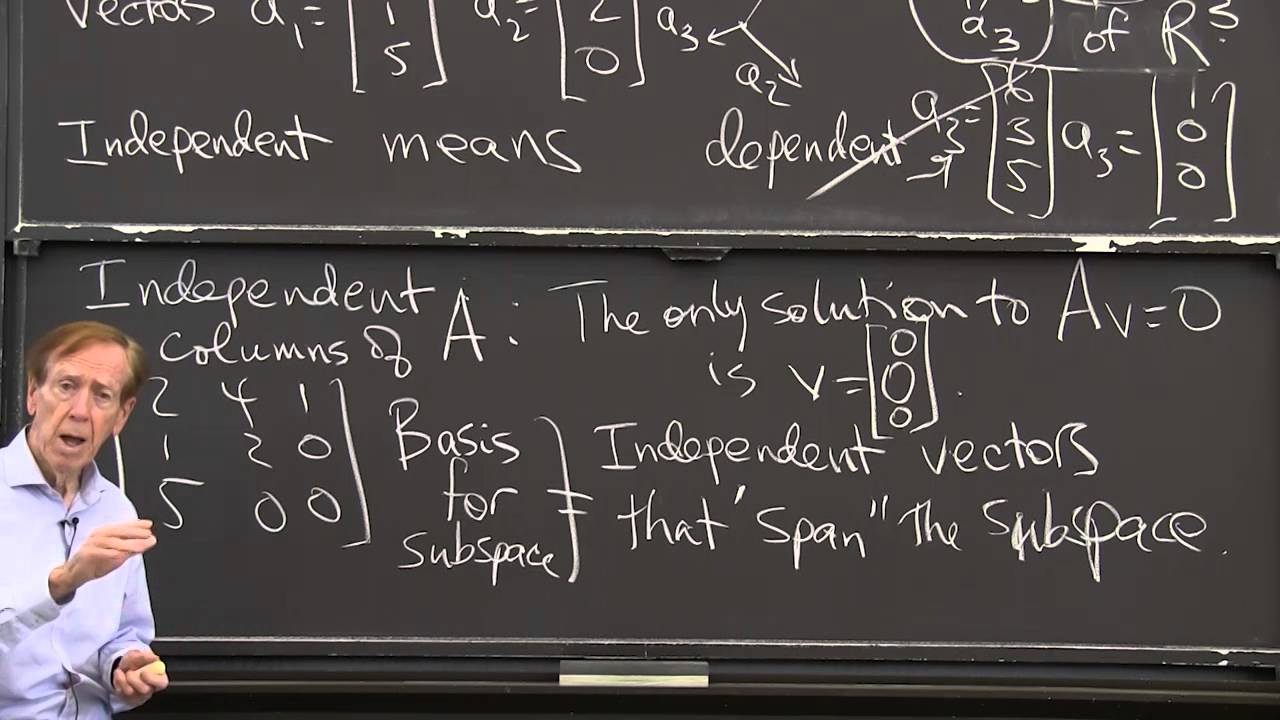 Vectors a1 = [ 1 5 ] a2 = [ 2 0 ] a3 a2 a3 of R3
Independent means dependent a3 = [ 6 3 5 ] a3 = [ 1 0 0 ]
Independent columns of A : The only solution to Av=0
is v = [ 0 0 0 ] .
2 4 1
1 2 0
5 0 0
Basis for subspace } = Independent vectors
that "span" the subspace.